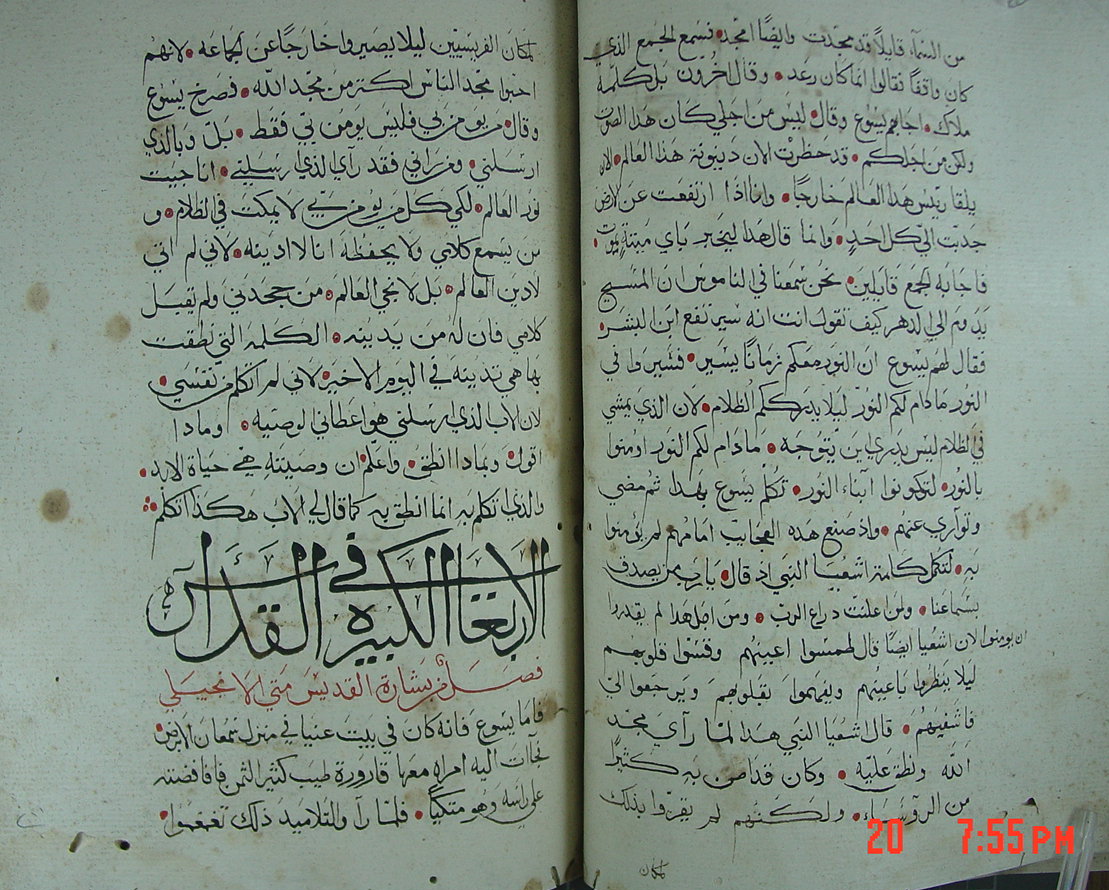 من السمآء قايلاً قد مجدت وايضًا امجد • فسمع الجمع الذي
كان واقفًا فقالوا انما كان رعد • وقال اخرون بل كلمه
ملاك • اجابهم يسوع وقال • ليس من اجلي كان هذا الصوت
ولكن من اجلكم • قد حضرت الان دينونة هذا العالم • الان
يلقا رييس هذا العالم خارجًا • وانا اذا ارتفعت عن الارض
جذبت اليّ كل احدٍ • وانما قال هذا ليخبر باي ميتةٍ يموت •
فاجابه الجمع قايلين • نحن سمعنا في الناموس ان المسيح
يدوم الي الدهر كيف تقول انت انه سيرتفع ابن البشر •
فقال لهم يسوع ان النور معكم زمانًا يسير • فسيروا في
النور ما دام لكم النور ليلا يدرككم الظلام • لان الذي يمشي
في الظلام ليس يدري اين يتوجه • مادام لكم النور اومنوا
بالنور • لتكونوا ابناء النور • تكلم يسوع بهذا ثم مضي
وتواري عنهم • واذ صنع هذه العجايب امامهم لم يومنوا
به • لتكمل كلمة اشعيا النبي اذ قال • يارب من يصدق
بسماعنا • ولمن اعلنت دراع الرب • ومن اجل هدا لم يقدروا
ان يومنوا لان اشعيا ايضًا قال طمسوا اعينهم وقسّوا قلوبهم
ليلا ينظروا باعينهم ويفهموا بقلوبهم ويرجعوا اليّ
فاشفيهم • قال اشعيا النبي هدا لمّا رآي مجد
الله ونطق عليه • وكان قد امن به كثيرًا
من الروسآء • ولكنهم لم يقروا بذلك
لمكان
لمكان الفريسيين ليلا يصيروا خارجًا عن الجماعه • لانهم
احبوا مجد الناس اكتر من مجد الله • فصرخ يسوع
وقال • من يومن بي فليس يومن بي فقط • بل وبالذي
ارسلني • ومن رآني فقد رآي الذي ارسلني • انا جيت
نور العالم • لكي كل من يومن بي لا يمكت في الظلام • و
من يسمع كلامي ولا يحفظه انا لا ادينه • لاني لم اتي
لادين العالم • بل لانجي العالم • من جحدني ولم يقبل
كلامي فان لهُ من يدينه • الكلمه التي نطقت
بها هي تدينه في اليوم الاخير • لاني لم اتكلم من نفسي •
لان الاب الذي ارسلني هو اعطاني الوصيه • وماذا
اقول وبماذا انطق • واعلم ان وصيته هي حياة الابد •
والذي اتكلم به انما انطق به كما قال لي الاب هكذا اتكلم •
الاربعا الكبيره في القداس
فصل من بشارة القديس متي الانجيلي
فاما يسوع فانه كان في بيت عنيا في منزل سمعان الابرص •
فجآت اليه امراه معها قارورة طيب كثير الثمن فافاضته
على راسه وهو متكيًا • فلما رآ والتلاميد ذلك تقمقموا •
20 7:55 PM